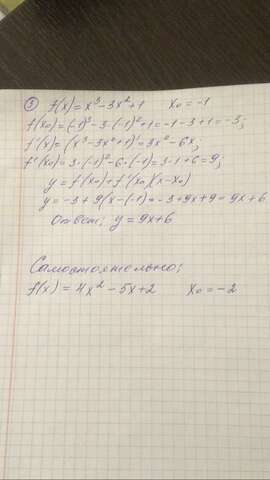 ③ f(x)=x³-3x²+1 x₀=-1
f(x₀)=(-1)³-3·(-1)²+1=-1-3+1=-3;
f'(x)=(x³-3x²+1)'=3x²-6x;
f'(x₀)=3·(-1)²-6·(-1)=3·1+6=9;
y=f(x₀)+f'(x₀)(x-x₀)
y=-3+9(x-(-1))=-3+9x+9=9x+6
Ответ: y=9x+6
Самостоятельно:
f(x)=4x²-5x+2 x₀=-2